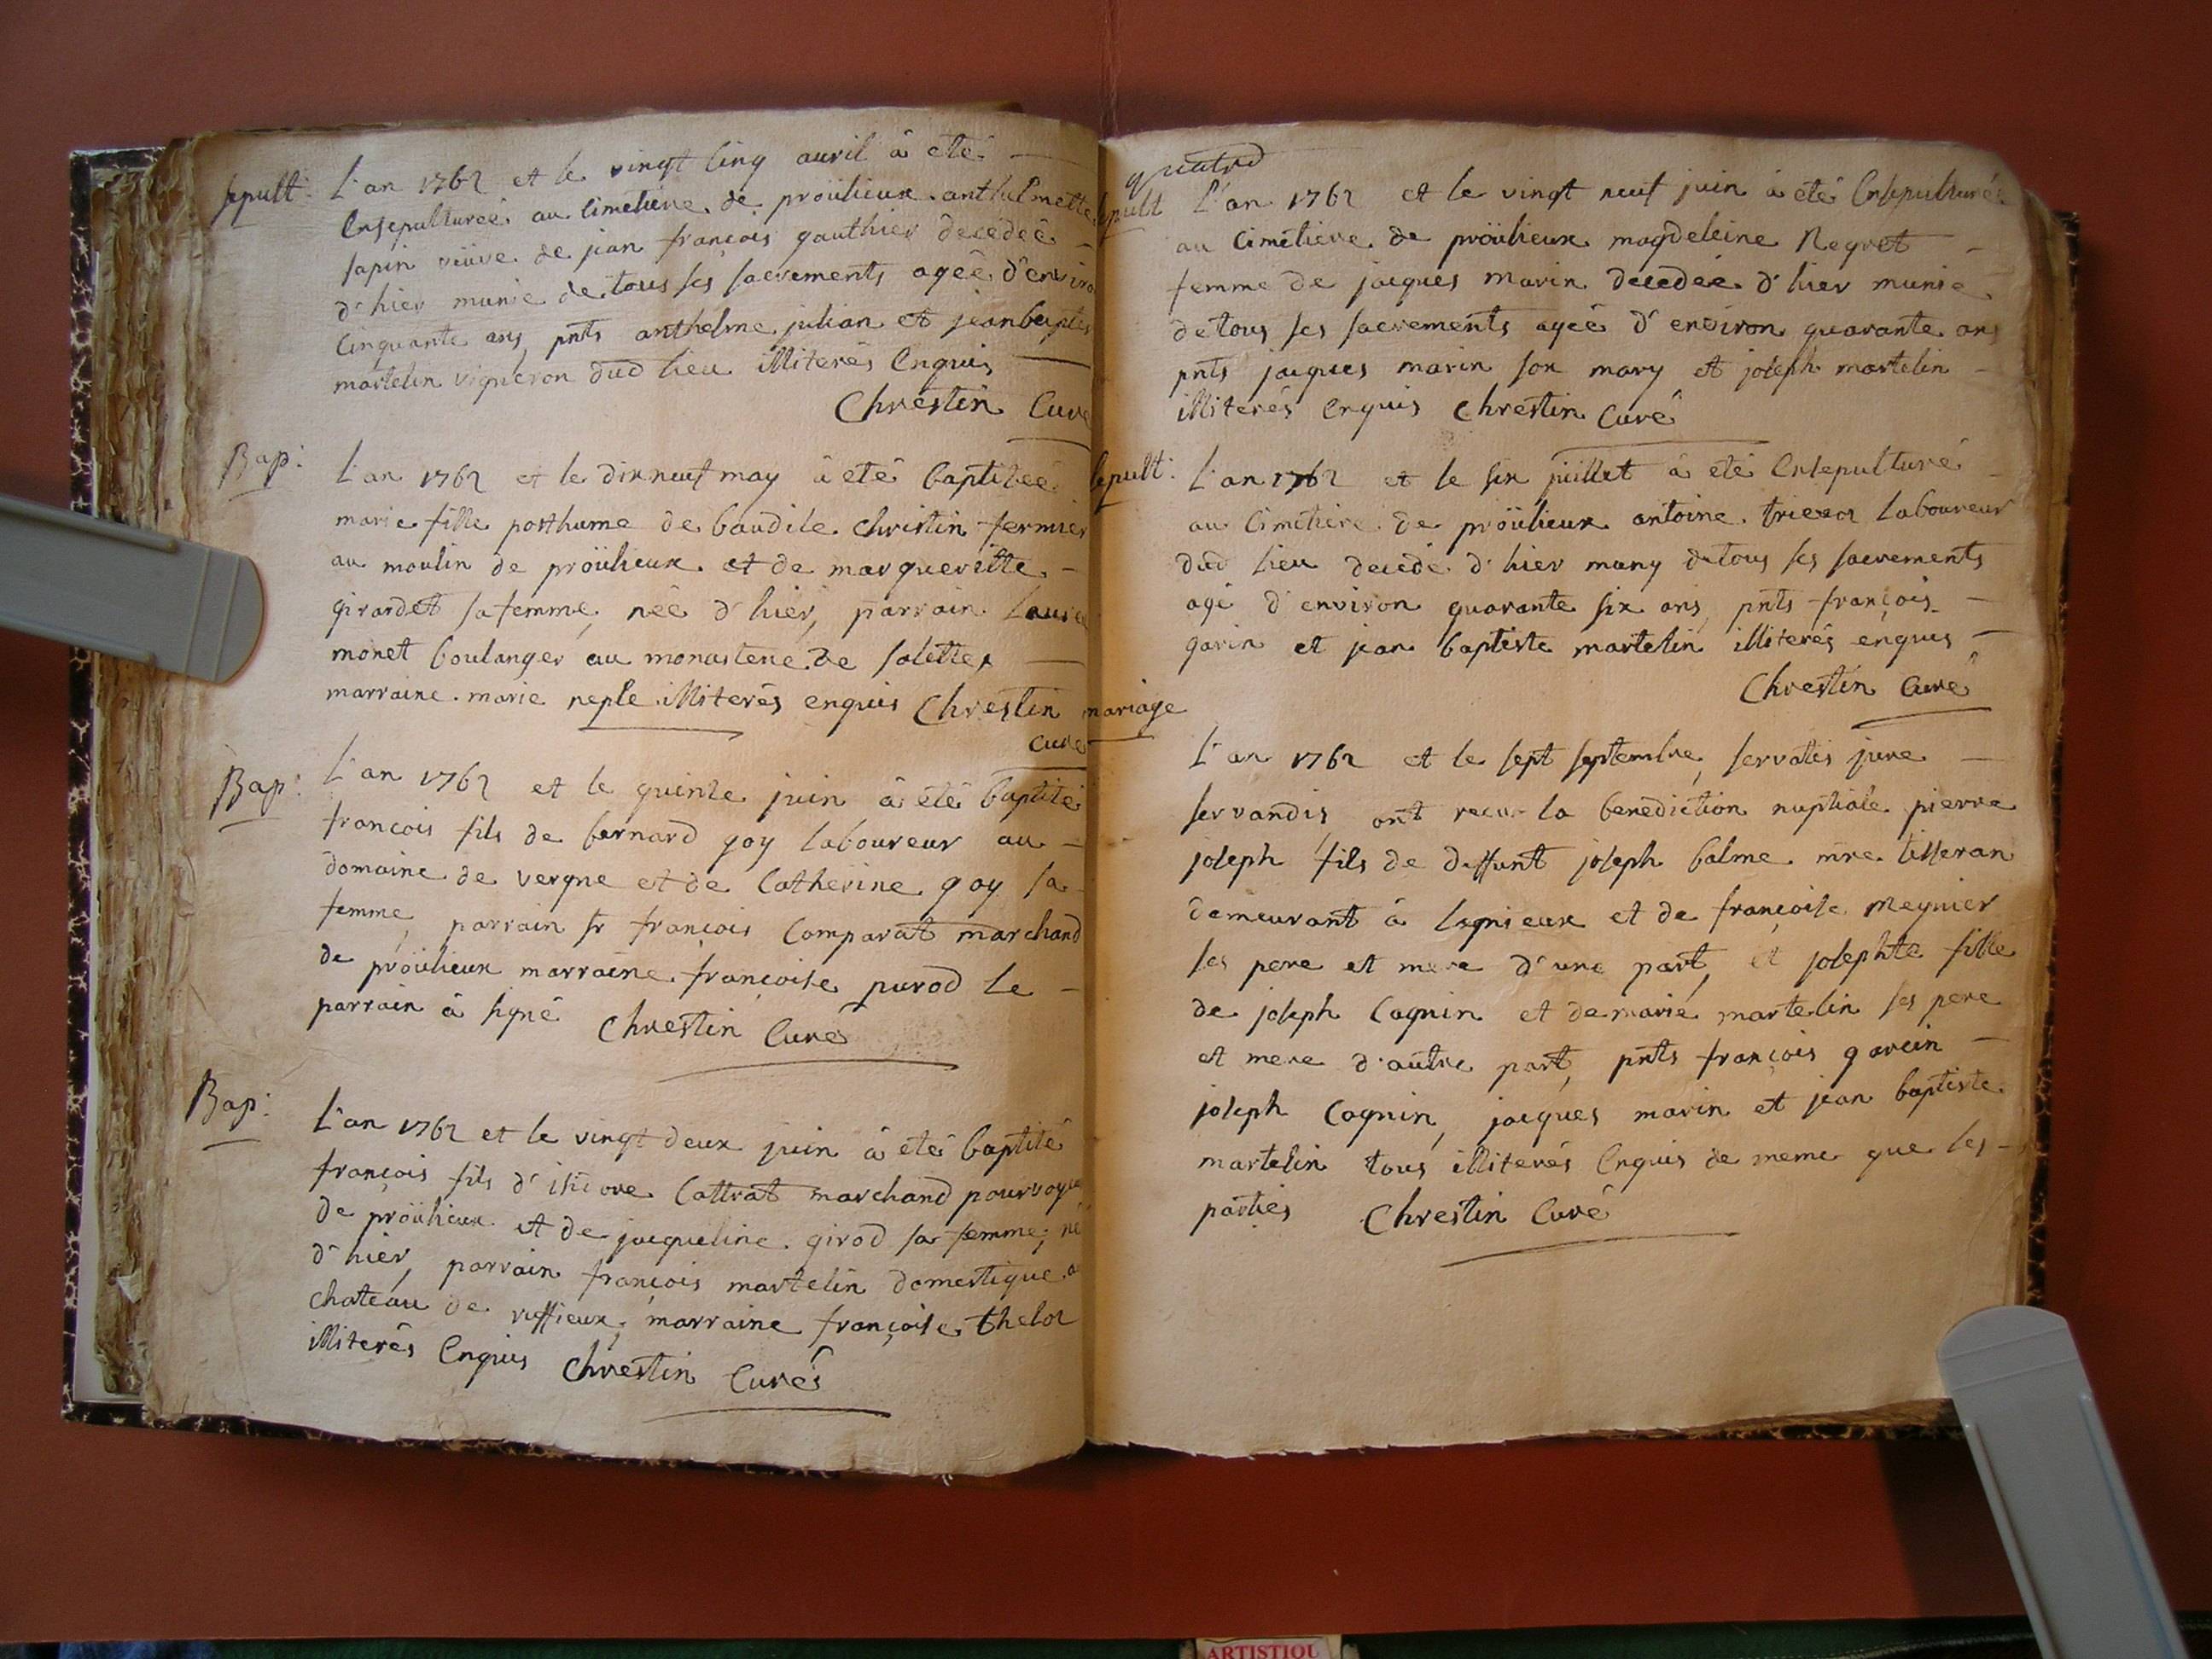 sepult: L'an 1762 et le vingt cinq avril à eté
Ensepulturée au Cimetiere de proülieux anthelmette
sapin veüve de jean françois gauthier decedée
d'hier munie de tous ses sacrements agée d'environ
Cinquante ans, pnts anthelme julian et jean baptiste
martelin vigneron dud lieu illiterés Enquis
Chrestin Curé
Bap: L'an 1762 et le dixneuf may à eté baptisée
marie fille posthume de baudile Christin fermier
au moulin de proülieux et de margueritte
girardet sa femme, née d'hier, parrain
monet boulanger au monastere de salette,
marraine marie neple illiterés enquis Chrestin
Curé
Bap: L'an 1762 et le quinze juin à eté baptisé
françois fils de bernard goy laboureur au
domaine de vergne et de Catherine goy sa
femme, parrain sr françois Comparat marchand
de proülieux marraine françoise purod le
parrain à signé Chrestin Curé
Bap: L'an 1762 et le vingt deux juin à eté baptisé
françois fils d'isidore Cattrat marchand pourvoyeur
de proülieux et de jacqueline girod sa femme, né
d'hier, parrain françois martelin domestique au
chateau de ruffieux, marraine françoise thelot
illiterés Enquis Chrestin Curé
quatre
sepult L'an 1762 et le vingt neuf juin à eté Ensepulturée
au Cimetiere de proülieux magdeleine Regret
femme de jacques marin decedée d'hier munie
de tous ses sacrements agée d'environ quarante ans
pnts jacques marin son mary et joseph martelin
illiterés Enquis Chrestin Curé
sepult: L'an 1762 et le six juillet à eté Ensepulturé
au Cimetiere de proülieux antoine laboureur
dud lieu decedé d'hier muny de tous ses sacrements
agé d'environ quarante six ans, pnts françois
garin et jean baptiste martelin illiterés enquis
Chrestin Curé
mariage
L'an 1762 et le sept septembre, servatis jure
servandis, ont recu la benediction nuptiale pierre
joseph fils de deffunt joseph balme mre tisseran
demeurant à lagnieux et de françoise meynier
ses pere et mere d'une part, et josephte fille
de joseph Cognin et de marie martelin ses pere
et mere d'autre part, pnts françois garcin
joseph Cognin, jacques marin et jean baptiste
martelin tous illiterés Enquis de meme que les
parties Chrestin Curé
ARTISTIQU